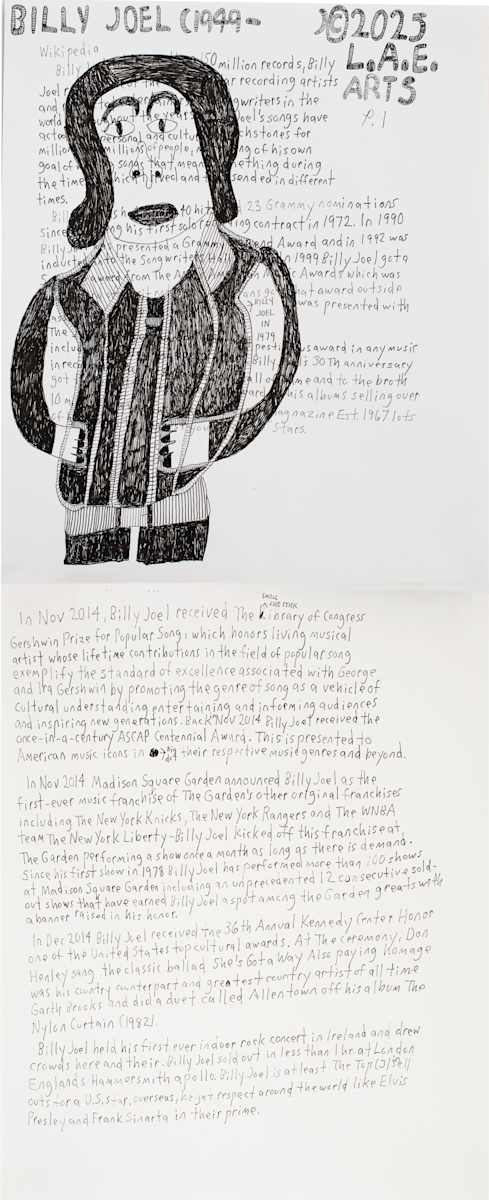 BILLY JOEL (1949-        ) ©2025
L.A.E.
ARTS
P. 1
Wikipedia
Billy 150 million records, Billy
Joel r of the ar recording artists
and songwriters in the
world. hout the years Joel's songs have
acted personal and cultu chstones for
millio millions of people, m ng of his own
goal of songs that mean thing during
the time which lived and nd ed in different
times.
Bil s ha 40 hit 23 Grammy nominations
since ng his first solo r ing contract in 1972. In 1990
Billy presented a Grammy end Award and in 1992 was
inducted to the Songwriters Hall In 1999 Billy Joel got a
Award from The Am Awards which was
ans go hat award outside
was presented with
BILLY
JOEL
IN
1979
The
includ pesti us award in any music
in reco Billy 's 30th anniversary
got all of me and to the broth
10 m ward his albums selling over
of magnazine Est. 1967 lots
you Stars.
SMALL
AND STICK
In Nov 2014, Billy Joel received The Library of Congress
Gershwin Prize for Popular Song, which honors living musical
artist whose lifetime contributions in the field of popular song
exemplify the standard of excellence associated with George
and Ira Gershwin by promoting the genre of song as a vehicle of
cultural understanding entertaining and informing audiences
and inspiring new generations. Back Nov 2014 Billy Joel received the
once-in-a-century ASCAP Centennial Award. This is presented to
American music icons in their respective music genres and beyond.
In Nov 2014 Madison Square Garden announced Billy Joel as the
first-ever music franchise of The Garden's other original franchises
including The New York Knicks, The New York Rangers and The WNBA
team The New York Liberty-Billy Joel kicked off this franchise at,
The Garden performing a show once a month as long as there is demand.
Since his first show in 1978 Billy Joel has performed more than 100 shows
at Madison Square Garden including an unprecedented 12 consecutive sold-
out shows that have earned Billy Joel a spot among the Garden greats with
a banner raised in his honor.
In Dec 2014 Billy Joel received The 36th Annual Kennedy Center Honor
one of the United States top cultural awards. At The ceremony, Don
Henley sang the classic ballad She's Got a Way Also paying homage
was his country counterpart and greatest country artist of all time
Garth Brooks and did a duet called Allentown off his album The
Nylon Curtain (1982).
Billy Joel held his first ever indoor rock concert in Ireland and drew
crowds here and their. Billy Joel sold out in less than 1 hr. at London
Englands Hammersmith apollo. Billy Joel is at least The Top
outs for a U.S. star, overseas, he got respect around the world like Elvis
Presley and Frank Sinnarta in their prime.